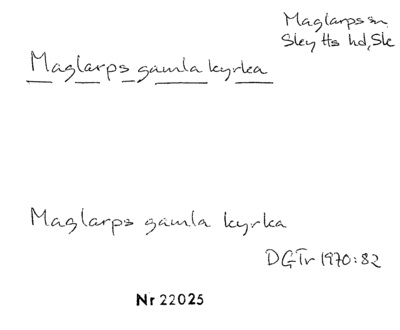 Maglarps sn
Skytts hd, Sk
Maglarps gamla kyrka
Maglarps gamla kyrka
DGTr 1970:82
Nr 22025